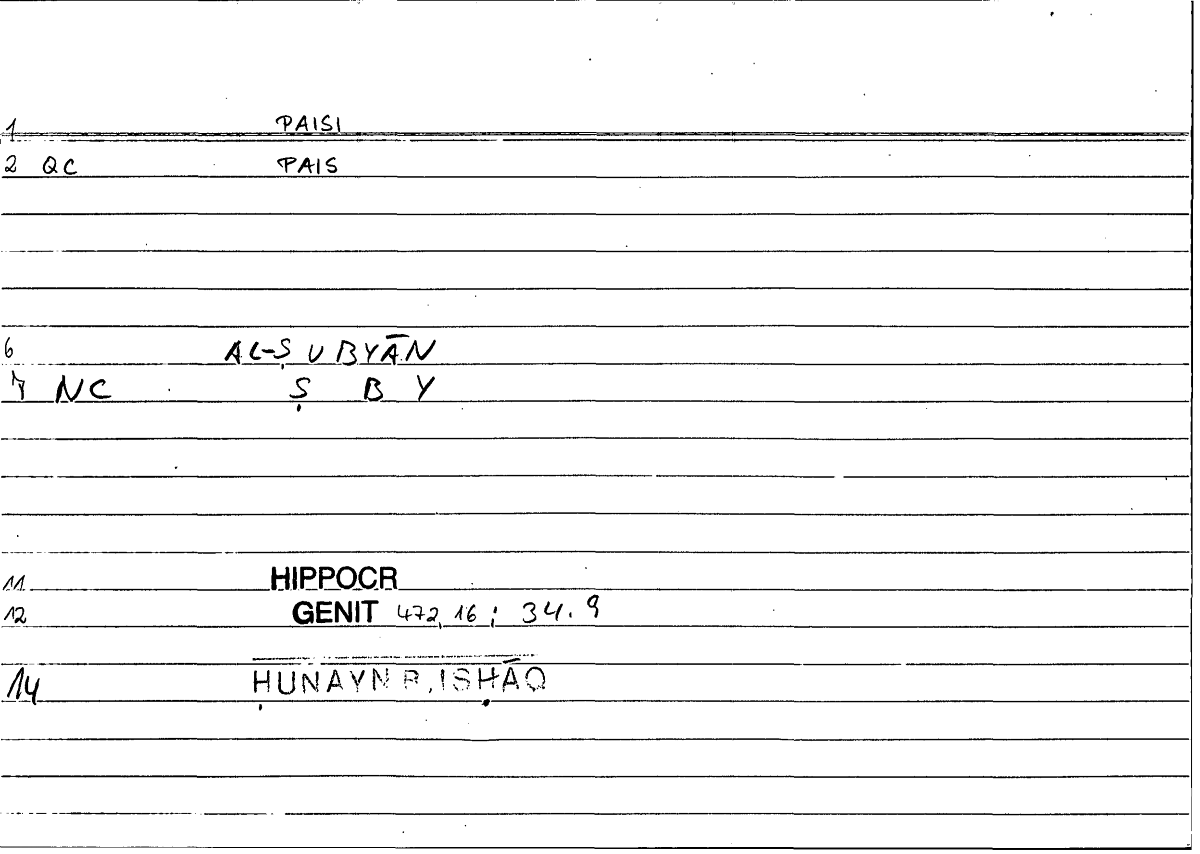 1 PAISI
2 QC PAIS
6 AL-ṢUBYĀN
7 NC Ṣ B Y
11 HIPPOCR
12 GENIT 472,16; 34.9
14 ḤUNAYN B. ISḤĀQ